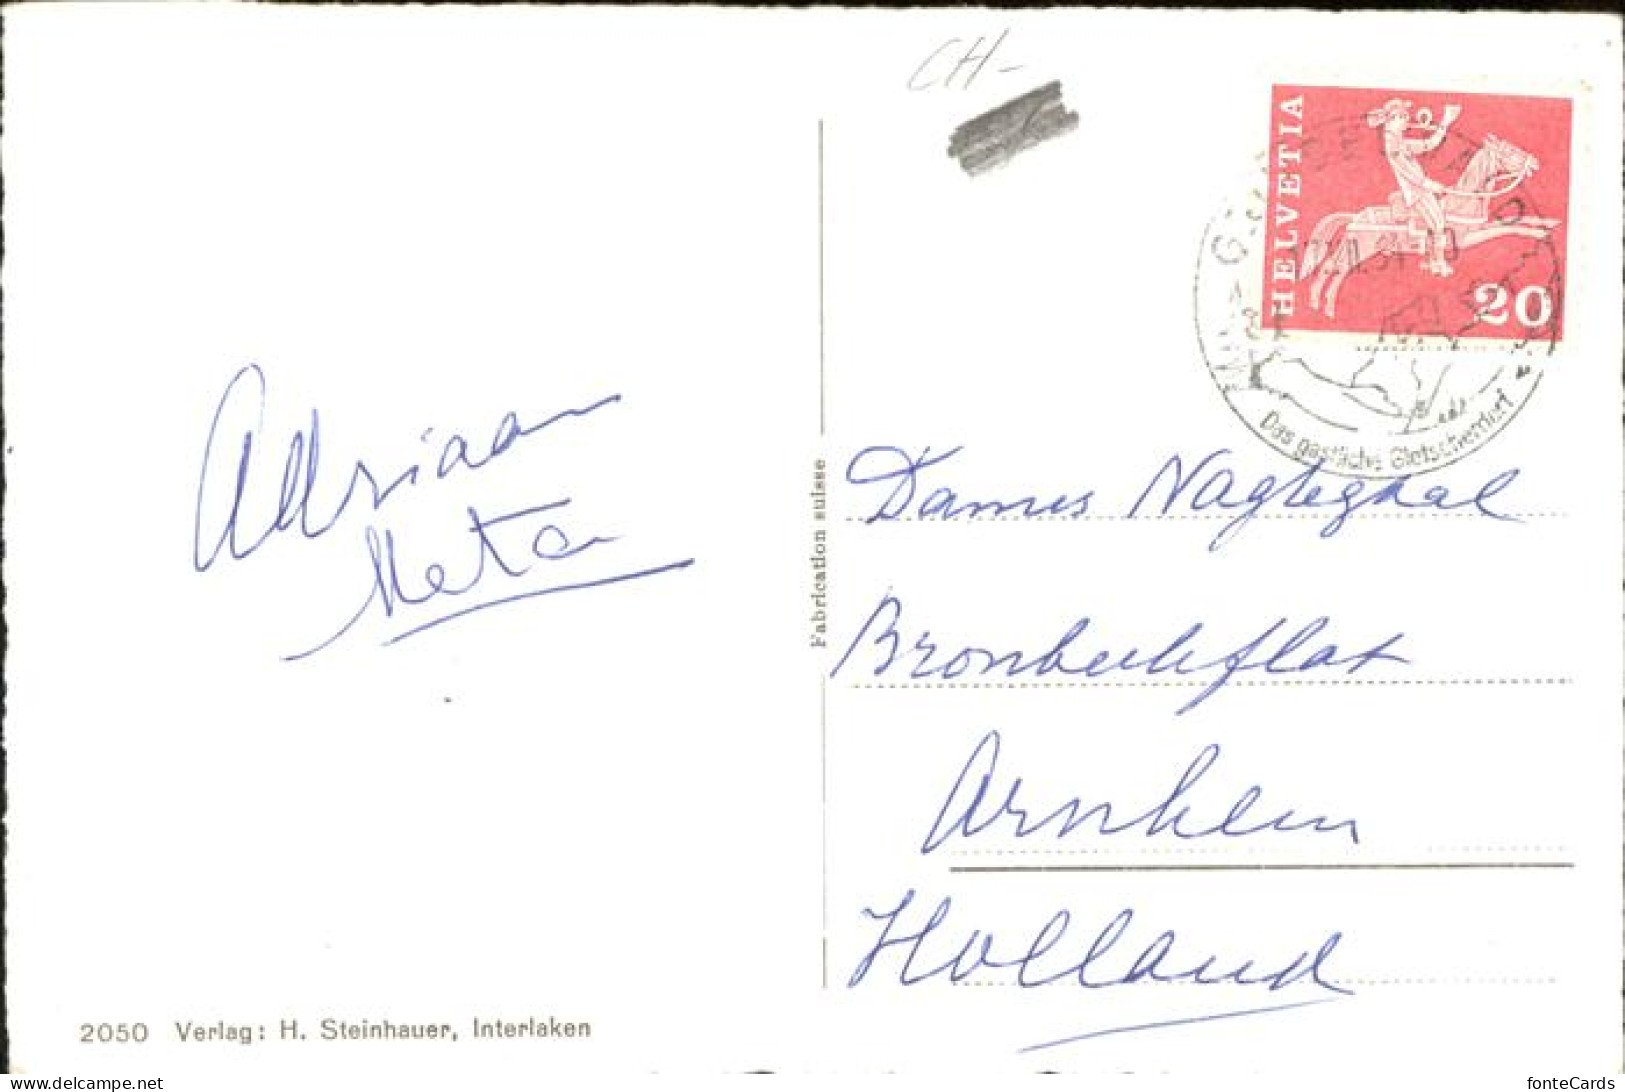 CH-
HELVETIA
20
Das gastliche Gletscherdorf
Adriaan
Meta
Fabrication suisse
Dames Nagtegaal
Arnhem
Holland
2050 Verlag: H. Steinhauer, Interlaken
delcampe.net
fonteCards